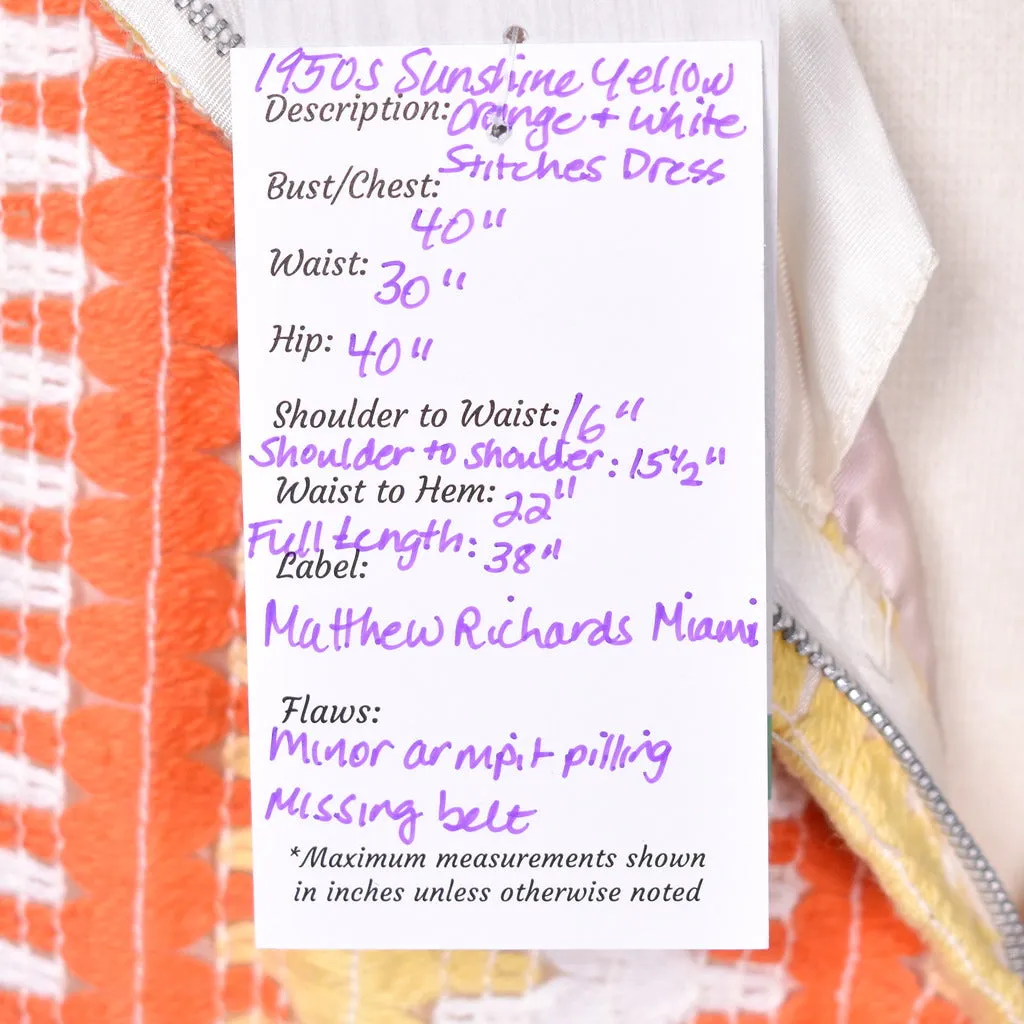 1950s Sunshine Yellow
Description: Orange + White
Stitches Dress
Bust/Chest:
40"
Waist: 30"
Hip: 40"
Shoulder to Waist: 16"
Shoulder to shoulder: 15 1/2"
Waist to Hem: 22"
Full Length: 38"
Label:
Matthew Richards Miami
Flaws:
Minor armpit pilling
Missing belt
*Maximum measurements shown
in inches unless otherwise noted